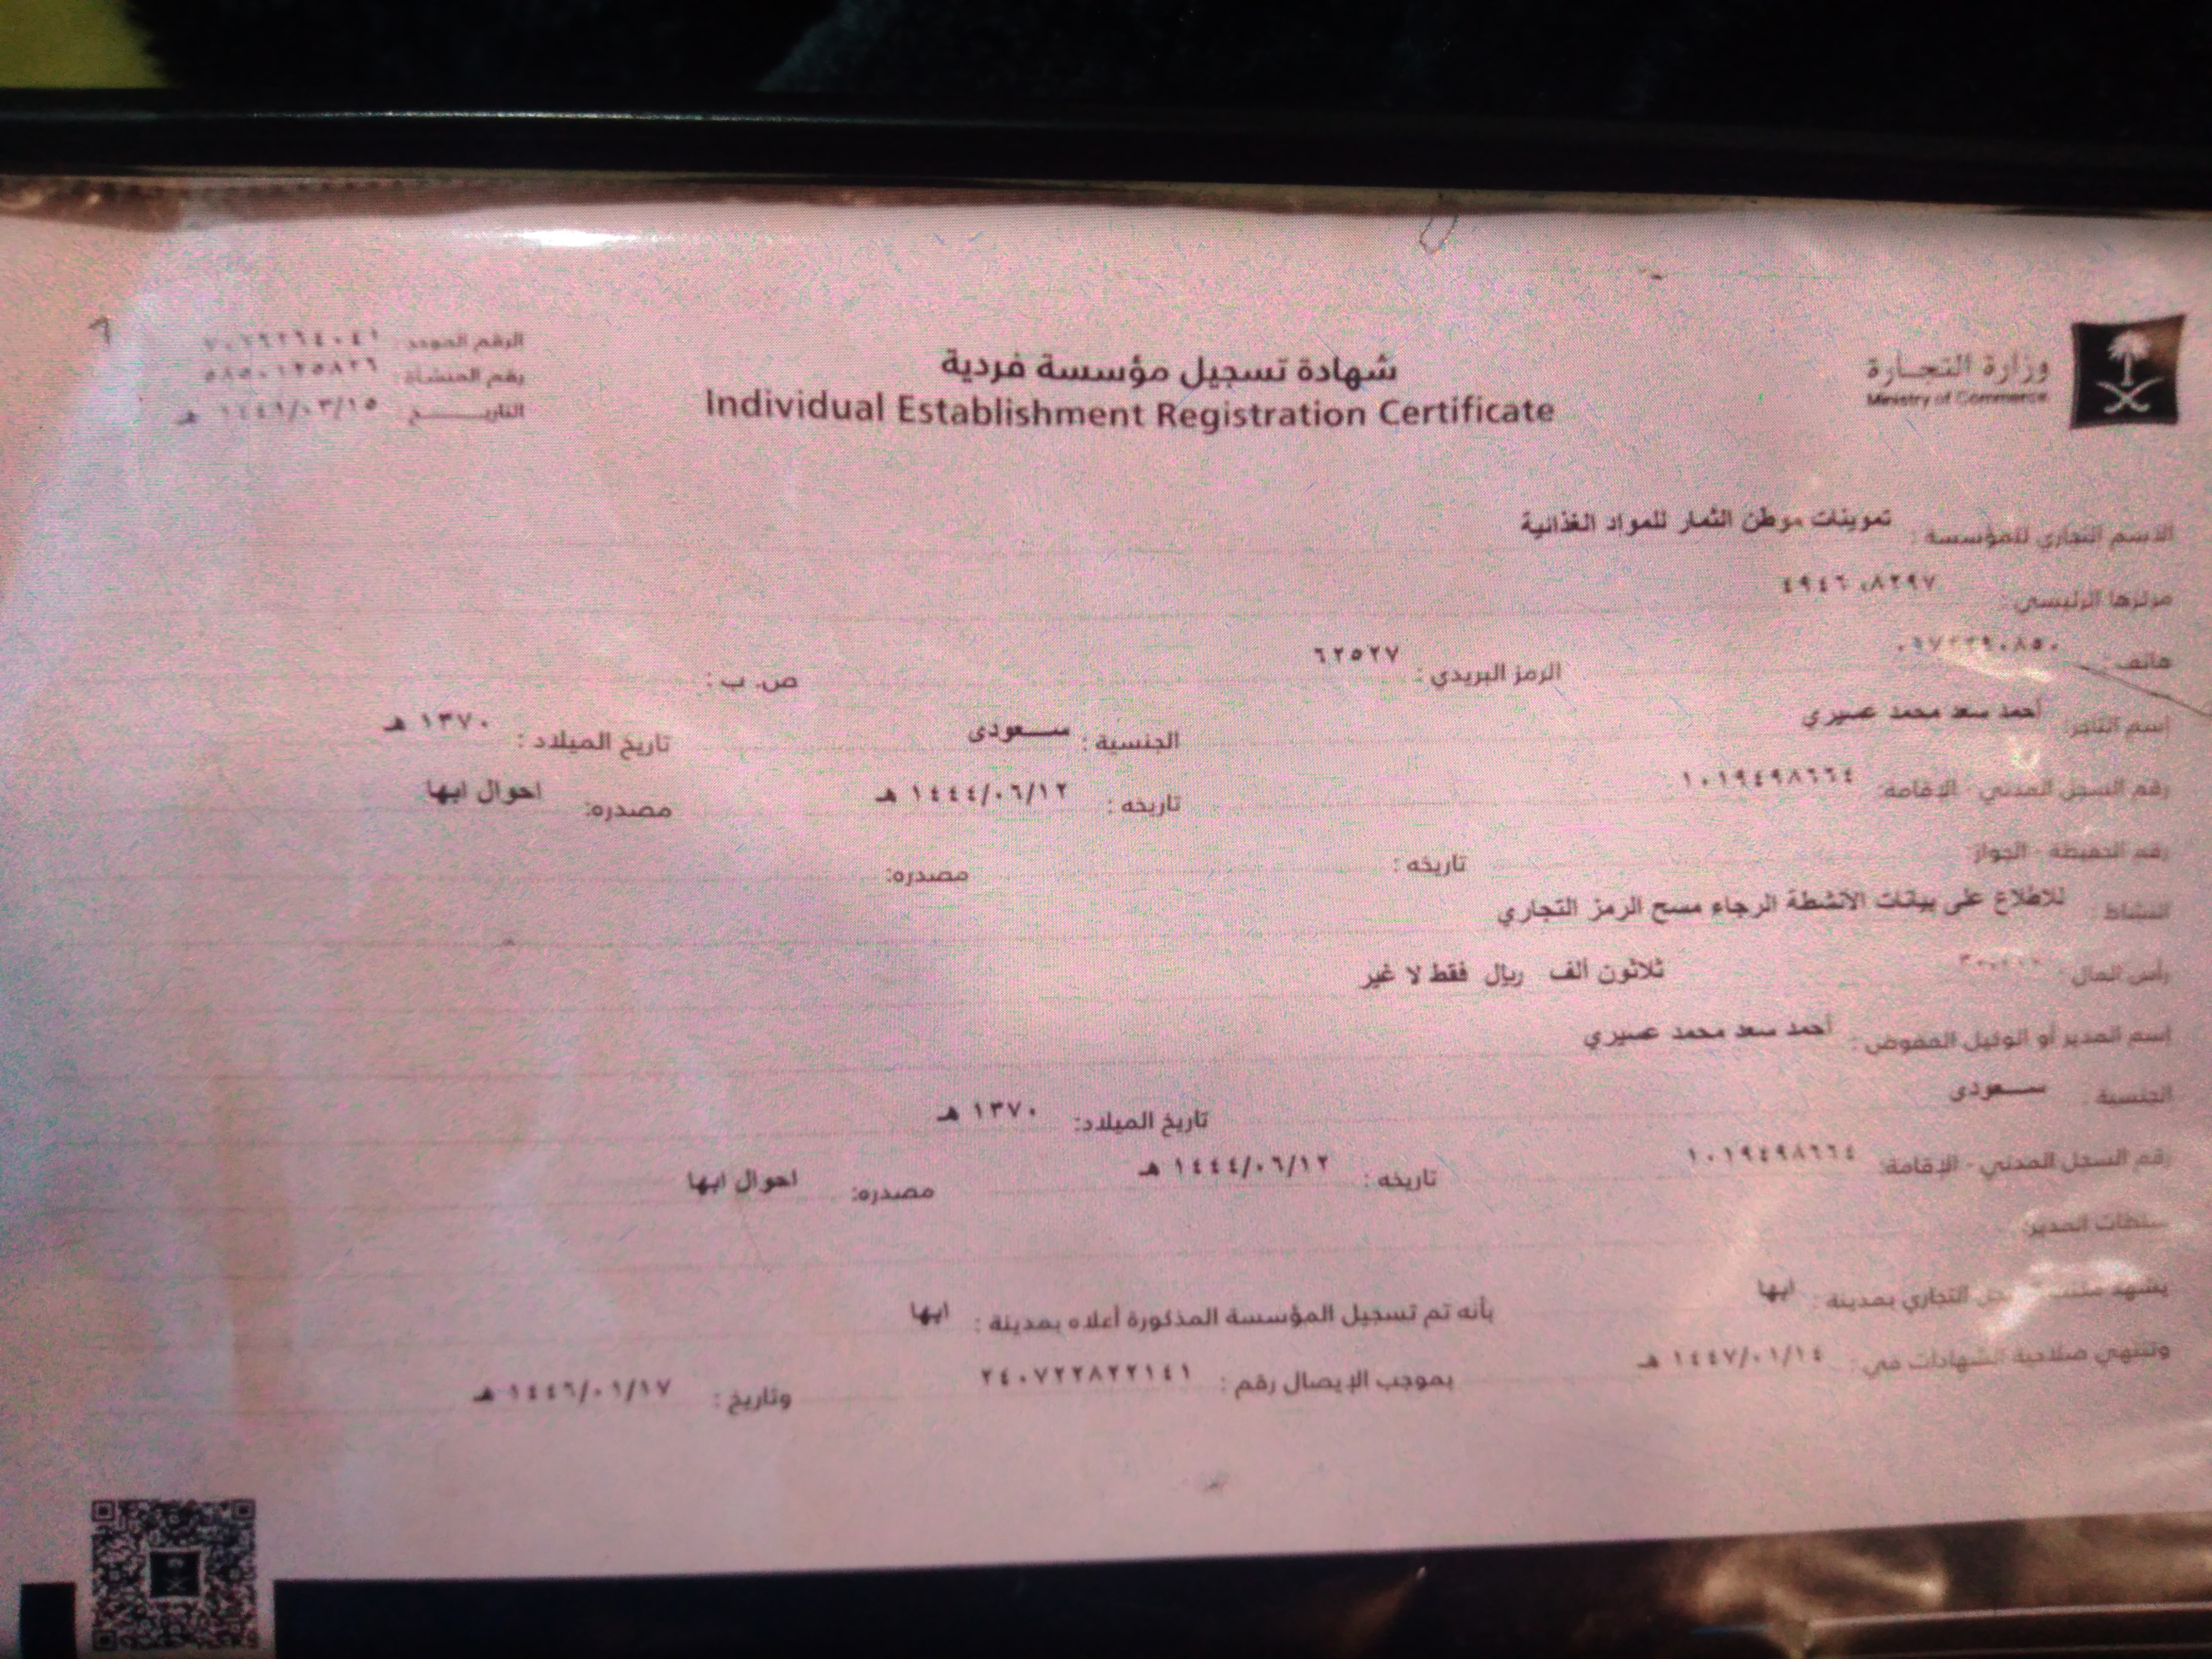 وزارة التجارة
Ministry of Commerce
شهادة تسجيل مؤسسة فردية
Individual Establishment Registration Certificate
الرقم الموحد
رقم المنشأة : ٥٨٥٠١٢٥٨٢٦
التاريخ
الاسم التجاري للمؤسسة : تموينات موطن الثمار للمواد الغذائية
مركزها الرئيسي :
هاتف : الرمز البريدي : ٦٢٥٢٧ ص. ب :
اسم التاجر: أحمد سعد محمد عسيري الجنسية : سعودى تاريخ الميلاد : ١٣٧٠ هـ
رقم السجل المدني - الإقامة: ١٠١٩٤٩٨٦٦٤ تاريخه : ١٤٤٤/٠٦/١٢ هـ مصدره: احوال ابها
رقم الحفيظة - الجواز تاريخه : مصدره:
النشاط للاطلاع على بيانات الأنشطة الرجاء مسح الرمز التجاري
رأس المال ثلاثون الف ريال فقط لا غير
اسم المدير أو الوكيل المفوض : أحمد سعد محمد عسيري
الجنسية سعودى تاريخ الميلاد: ١٣٧٠ هـ
رقم السجل المدني - الإقامة: ١٠١٩٤٩٨٦٦٤ تاريخه : ١٤٤٤/٠٦/١٢ هـ مصدره: احوال ابها
سلطات المدير:
يشهد التجاري بمدينة : ابها بأنه تم تسجيل المؤسسة المذكورة أعلاه بمدينة : ابها
وتنتهي صلاحية الشهادات في : ١٤٤٧/٠١/١٤ هـ بموجب الإيصال رقم : ٢٤٠٧٢٢٨٢٢١٤١ وتاريخ : ١٤٤٦/٠١/١٧ هـ